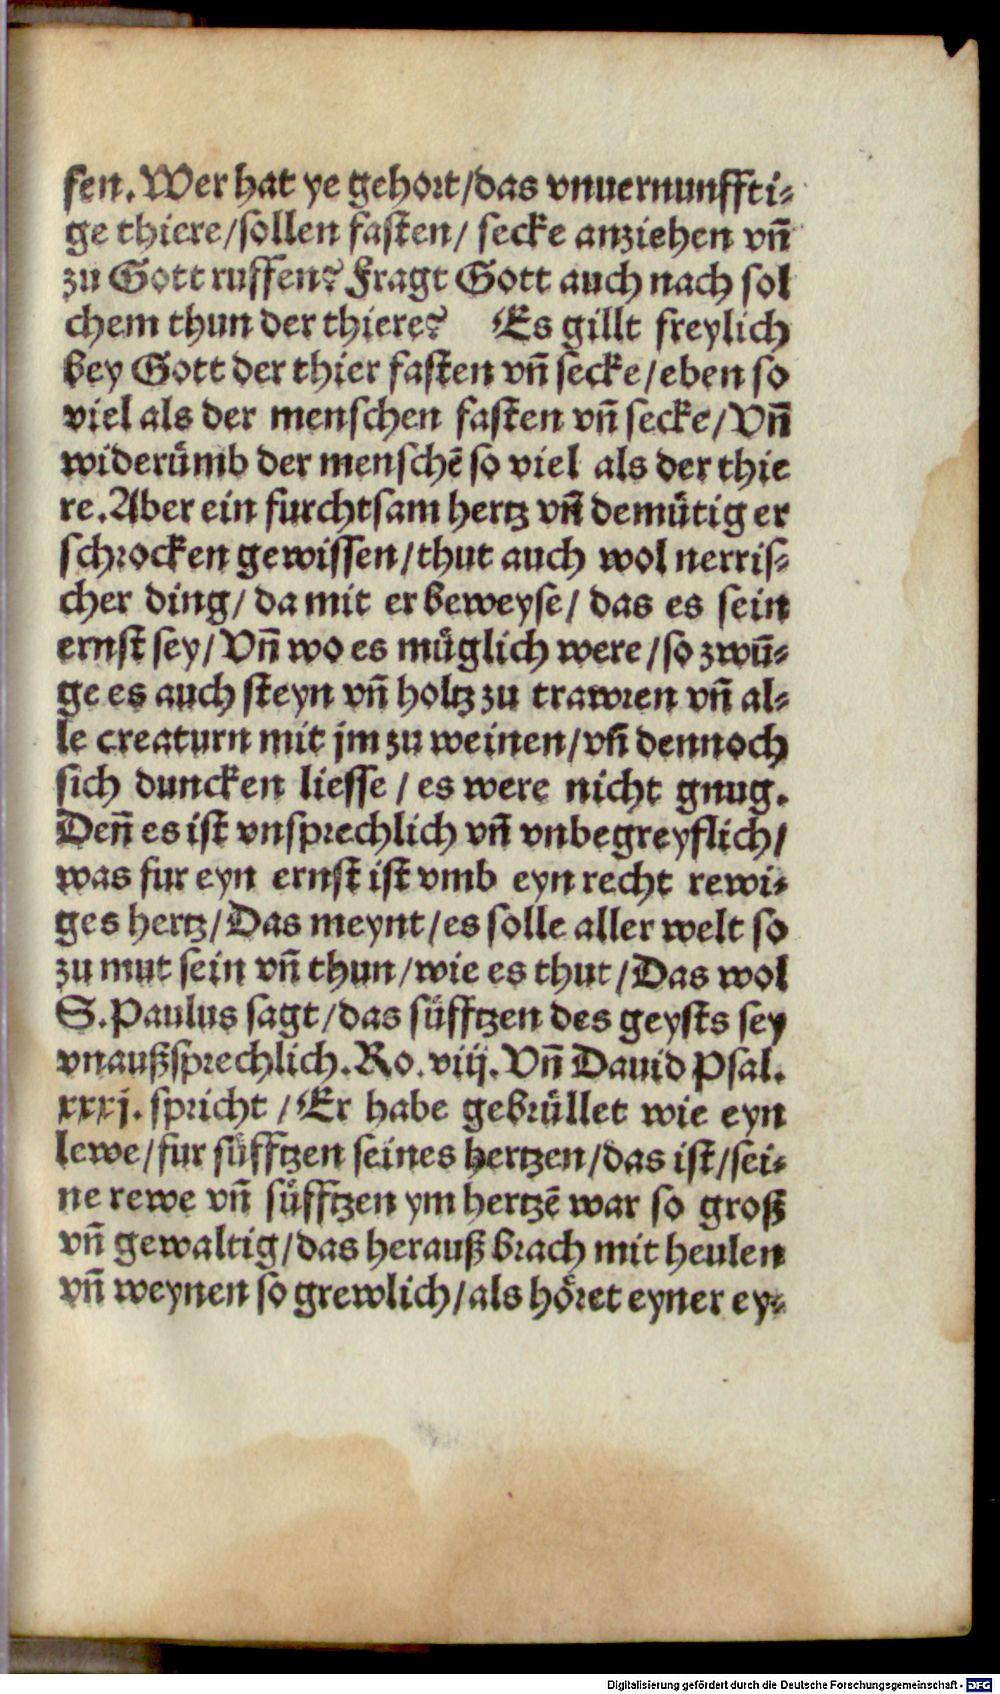 fen. Wer hat ye gehort/das vnuernunffti-
ge thiere/sollen fasten/ secke anziehen vñ
zu Gott ruffen? Fragt Gott auch nach sol
chem thun der thiere? Es gillt freylich
bey Gott der thier fasten vñ secke/eben so
viel als der menschen fasten vñ secke/Vñ
widerümb der menschē so viel als der thie
re. Aber ein furchtsam hertz vñ demütig er
schrocken gewissen/thut auch wol nerris-
cher ding/ da mit er beweyse/ das es sein
ernst sey/Vñ wo es müglich were/so zwū-
ge es auch steyn vñ holtz zu trawren vñ al-
le creaturn mit jm zu weinen/vñ dennoch
sich duncken liesse/ es were nicht gnug.
Deñ es ist vnsprechlich vñ vnbegreyflich/
was fur eyn ernst ist vmb eyn recht rewi-
ges hertz/Das meynt/es solle aller welt so
zu mut sein vñ thun/wie es thut/Das wol
S. Paulus sagt/das süfftzen des geysts sey
vnaußsprechlich. Ro. viij. Vñ Dauid Psal.
xxxj. spricht /Er habe gebrüllet wie eyn
lewe/fur süfftzen seines hertzen/das ist/sei-
ne rewe vñ süfftzen ym hertzē war so groß
vñ gewaltig/das herauß brach mit heulen
vñ weynen so grewlich/als höret eyner ey-
Digitalisierung gefördert durch die Deutsche Forschungsgemeinschaft - DFG